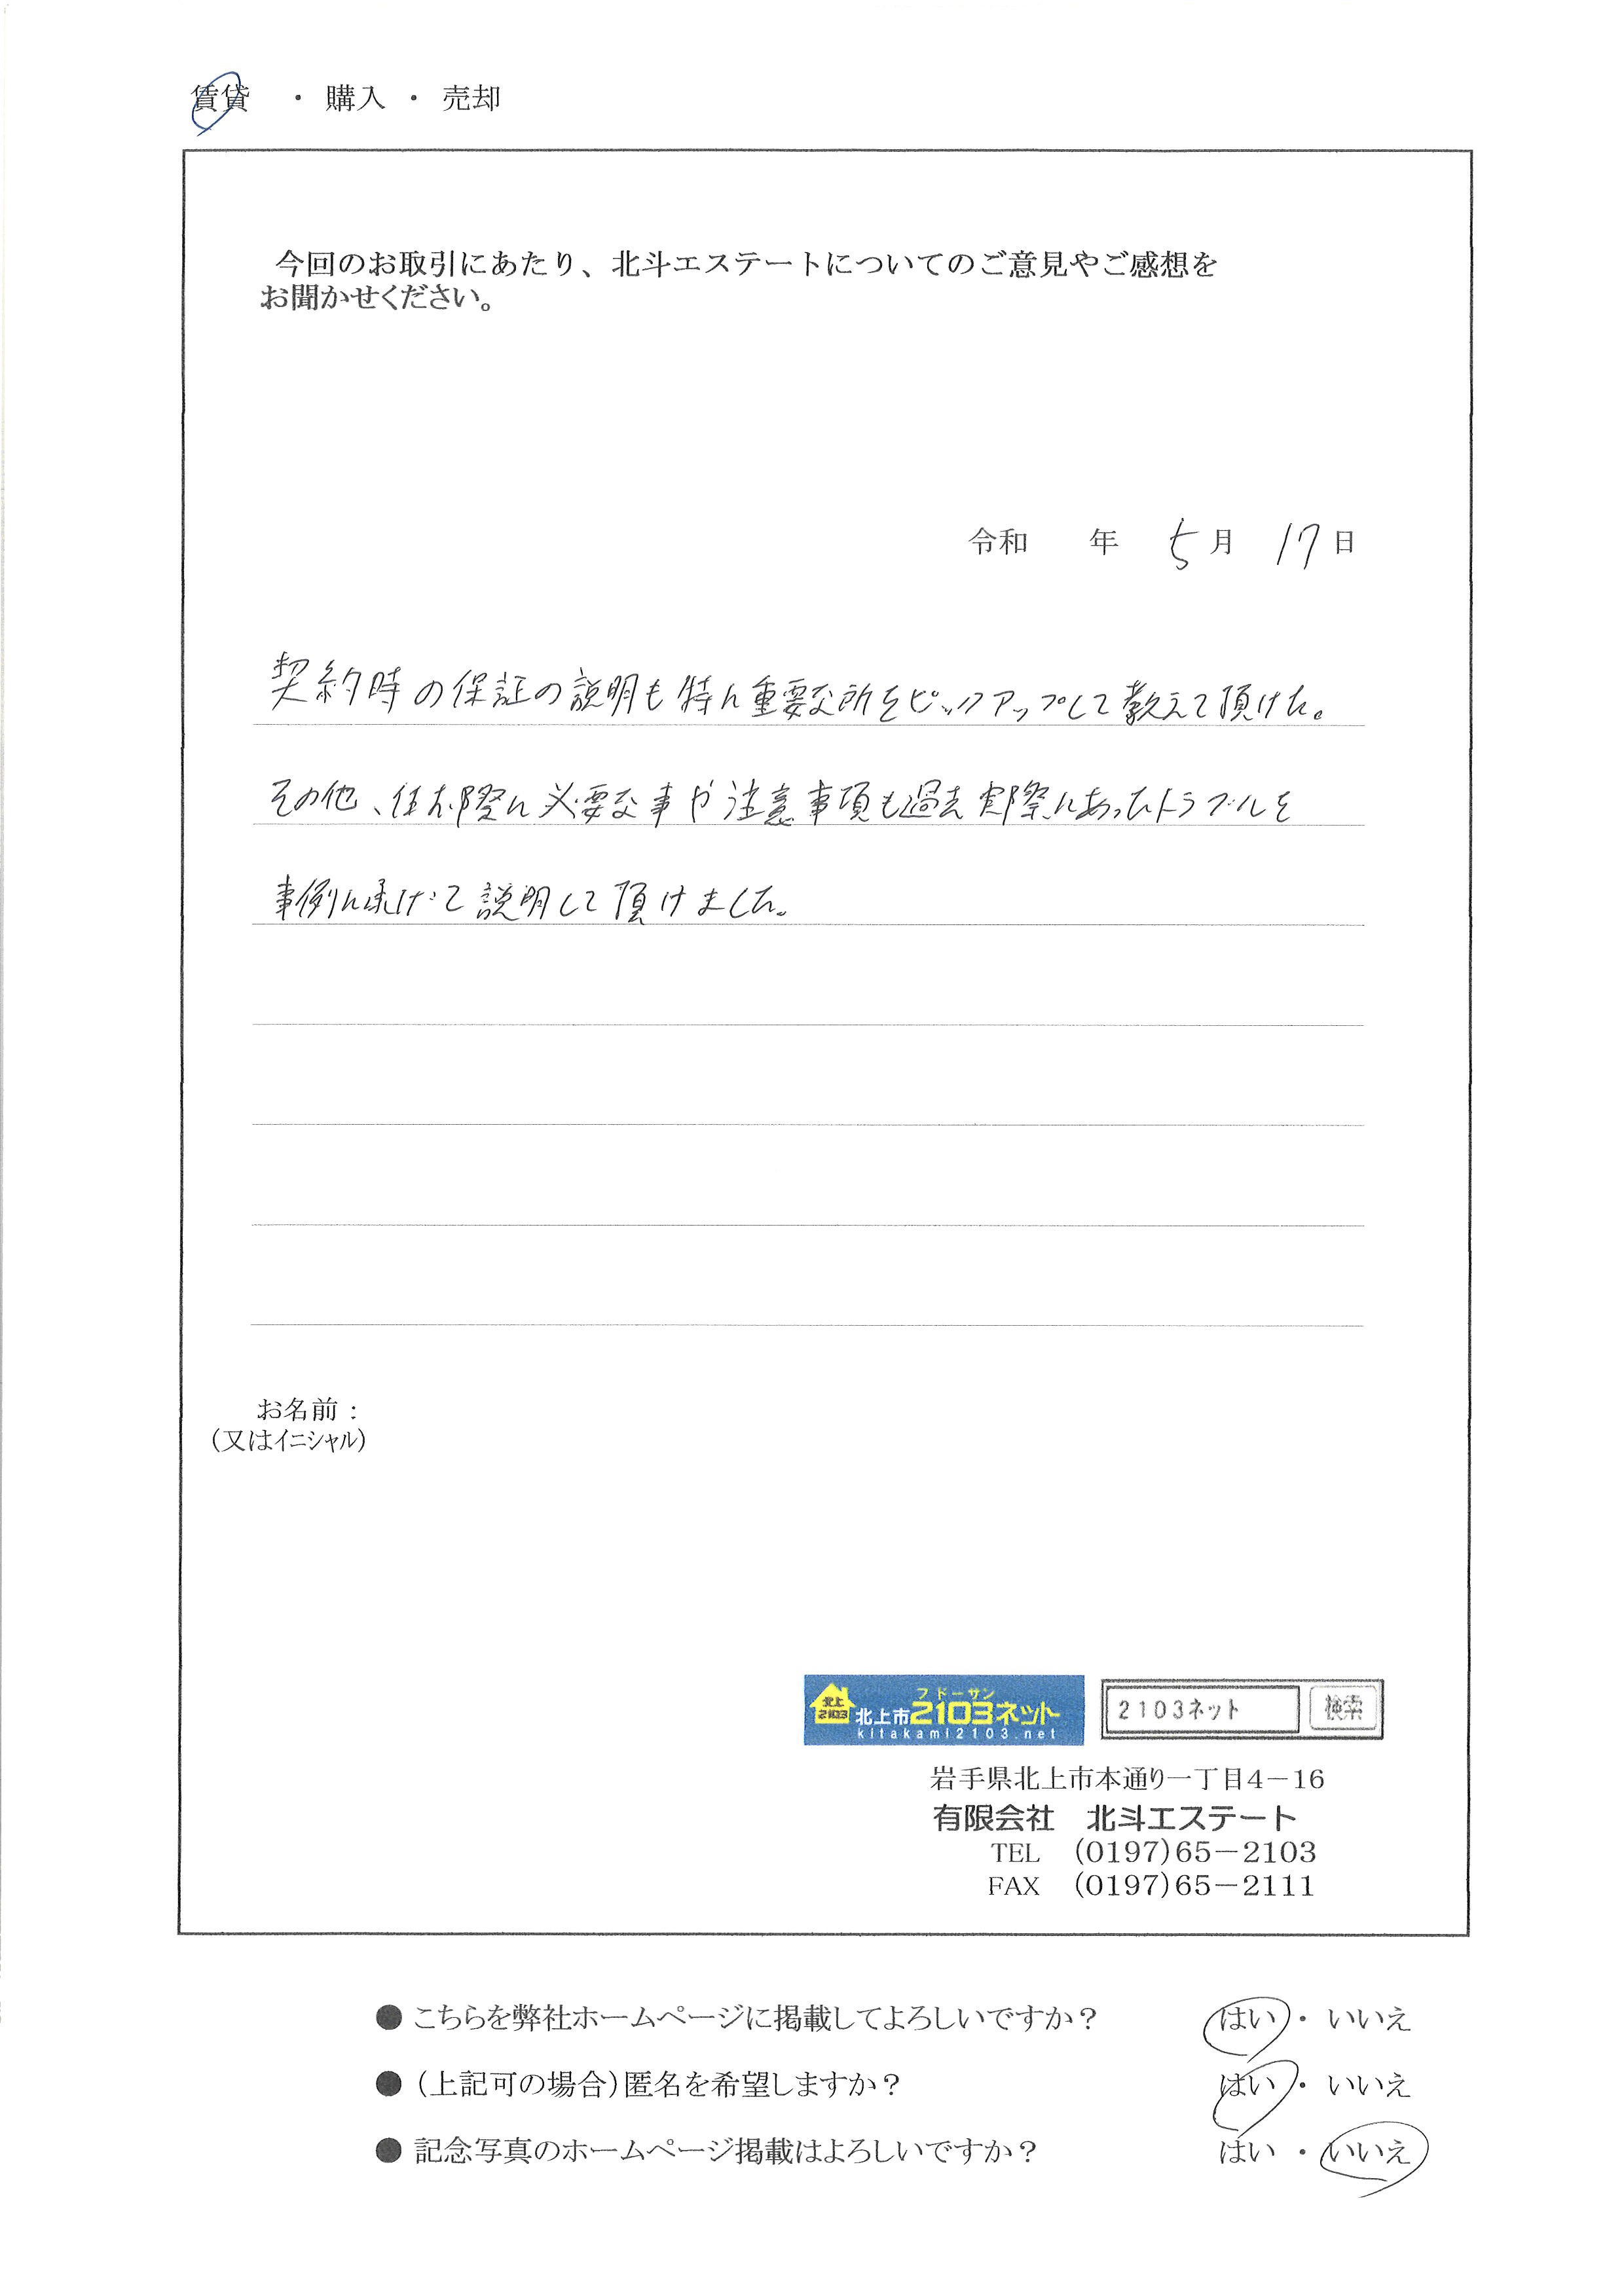 賃貸 ・ 購入 ・ 売却
今回のお取引にあたり、北斗エステートについてのご意見やご感想を
お聞かせください。
令和 年 5月 17日
契約時の保証の説明も特に重要な所をピックアップして教えて頂けた。
その他、住む際に必要な事や注意事項も過去実際にあったトラブルを
事例に挙げて説明して頂けました。
お名前：
（又はイニシャル）
北上
2103
フドーサン
北上市2103ネット
kitakami2103.net
2103ネット 検索
岩手県北上市本通り一丁目4－16
有限会社　北斗エステート
TEL （0197）65－2103
FAX （0197）65－2111
●こちらを弊社ホームページに掲載してよろしいですか？ はい ・ いいえ
●（上記可の場合）匿名を希望しますか？ はい ・ いいえ
●記念写真のホームページ掲載はよろしいですか？ はい ・ いいえ